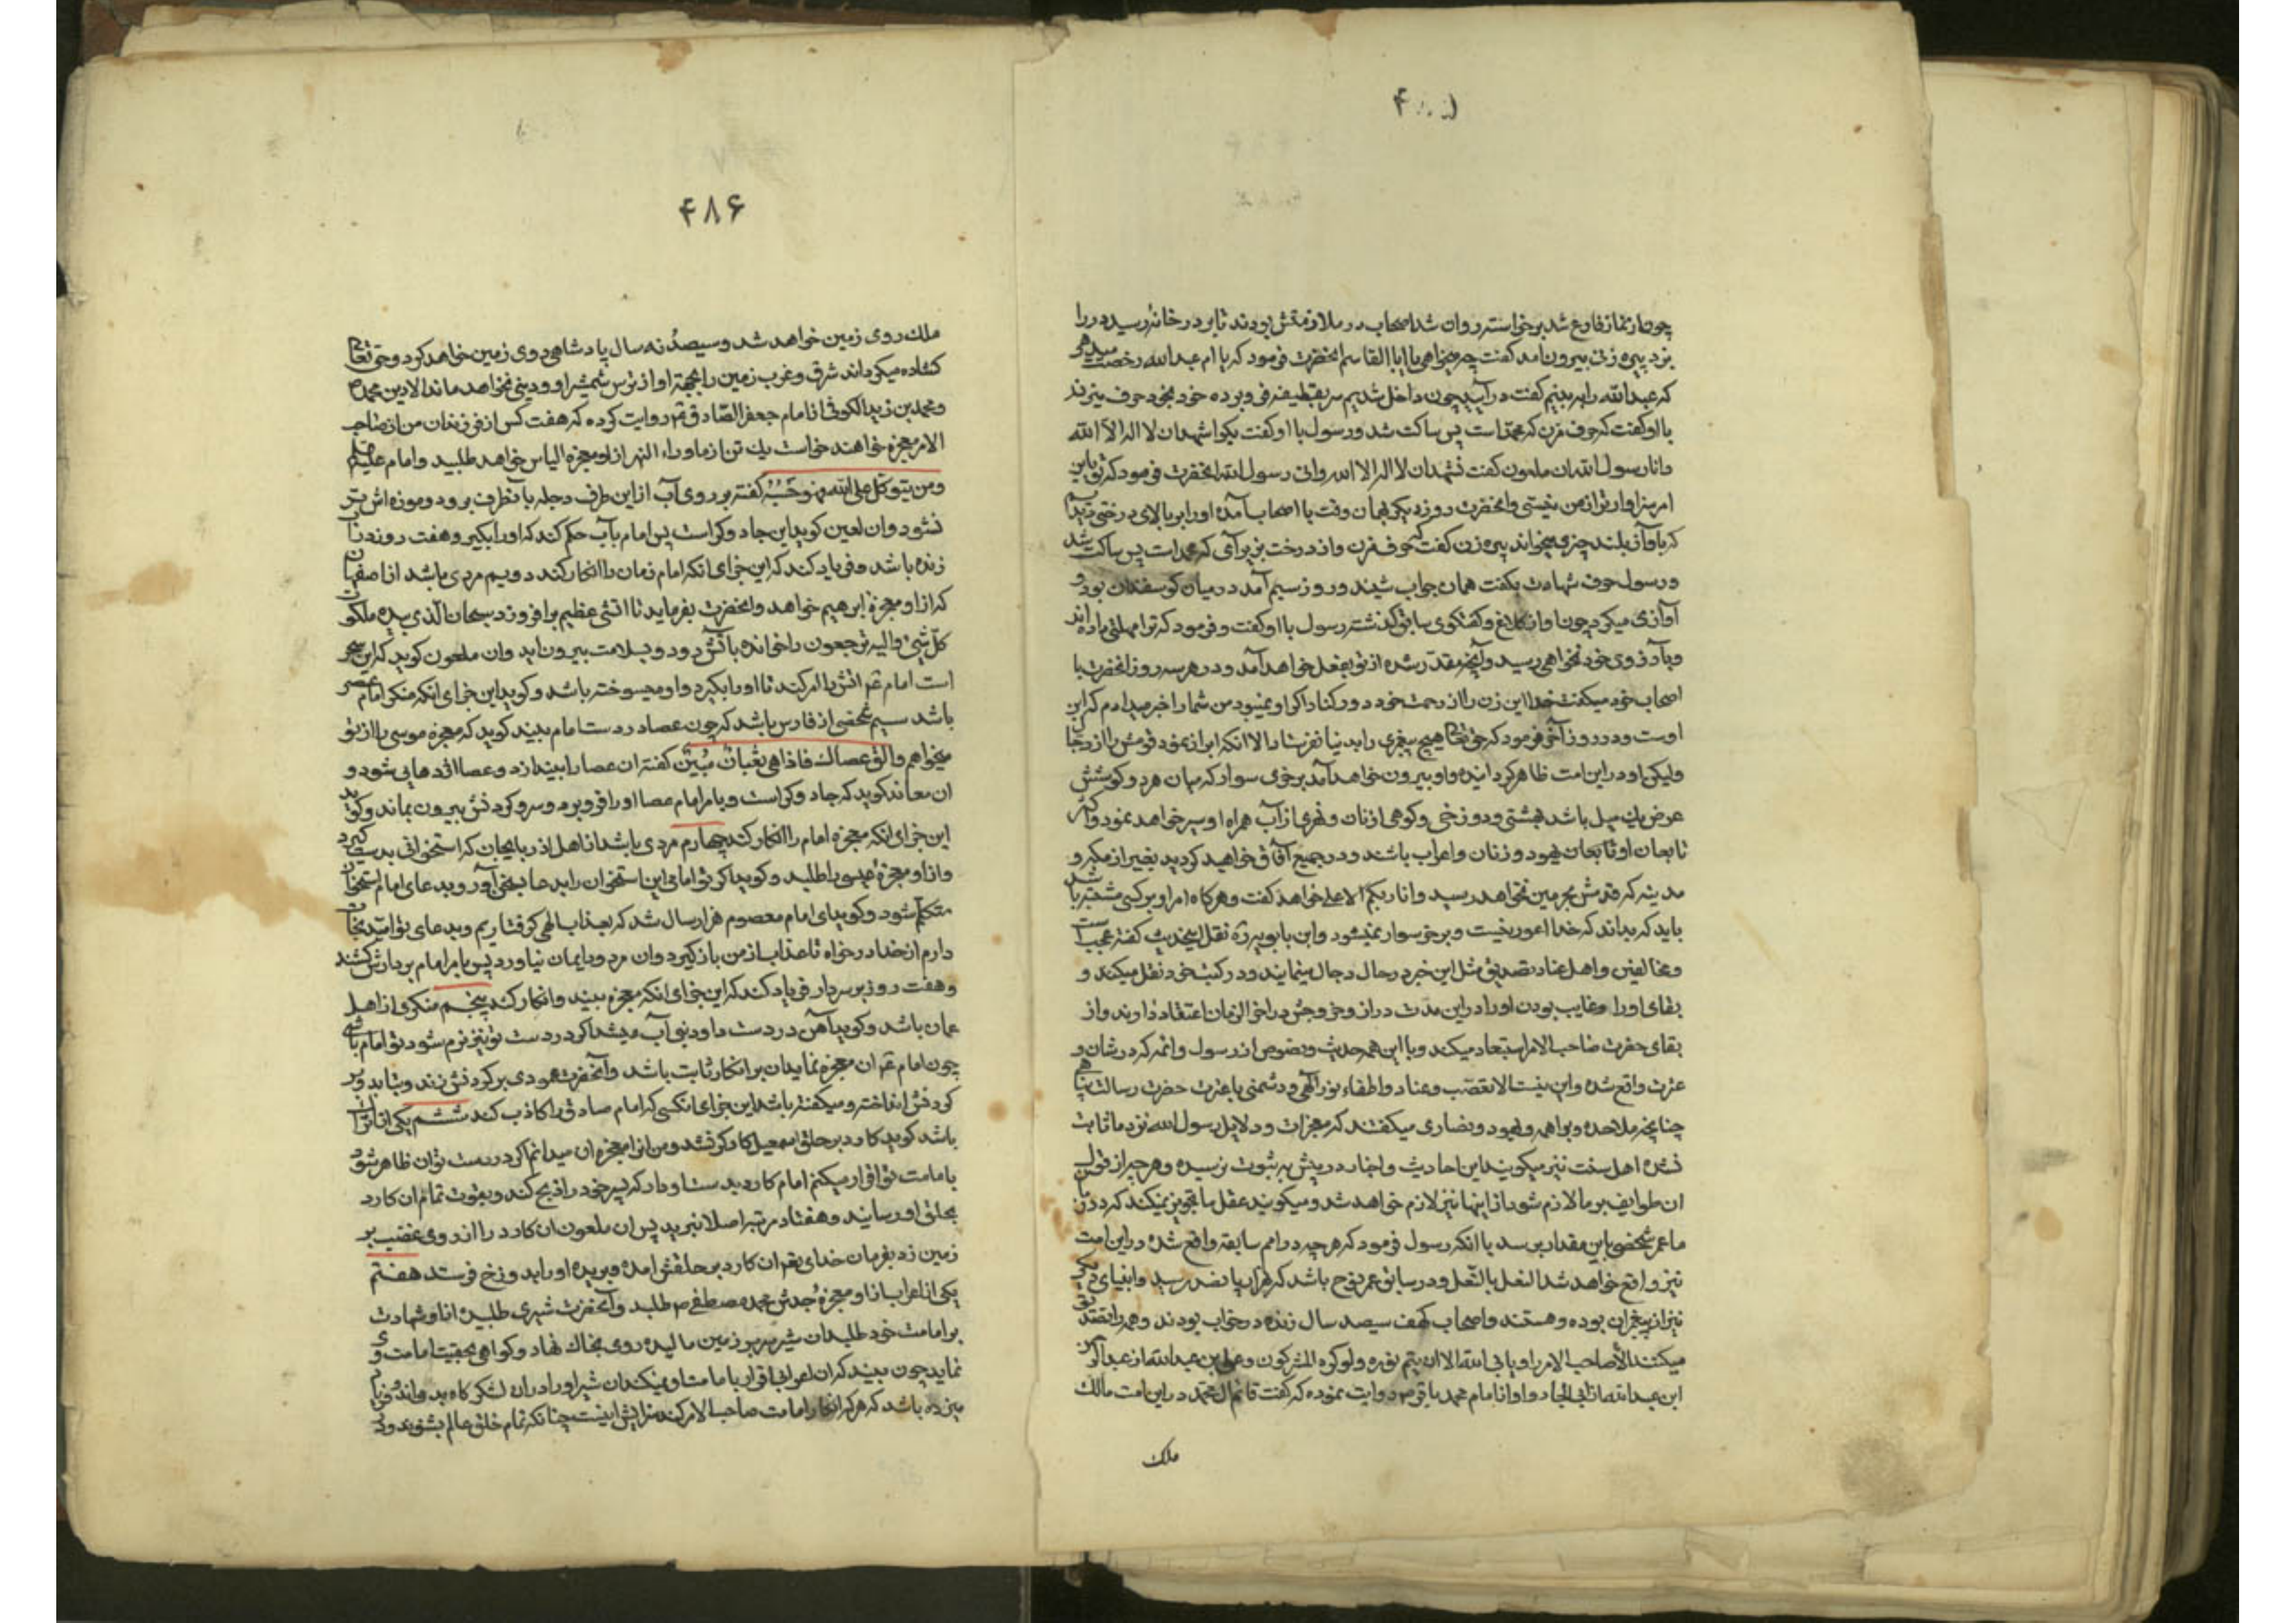 چون از نماز فارغ شد برخواسته روان شد اصحاب در ملازمتش بودند تا بر در خانه رسید در را
بزد پیره زنی بیرون آمد گفت چه میخواهی یا ابا القاسم انحضرت فرمود که یا ام عبد الله رخصت میدهی
که عبد الله را به بینم گفت در آیید چون داخل شدیم سر بقطیفه فرو برده خود بخود حرف میزند
با او گفت که حرف مزن که محمد است پس ساکت شد و رسول با او گفت بگو اشهد ان لا اله الا الله
و انا رسول الله ان ملعون گفت تشهد ان لا اله الا الله و انی رسول الله انحضرت فرمود که تو باین
امر سزاوارتر از من نیستی و انحضرت روز دیگر بهمان وقت با اصحاب آمده او را بر بالای درختی دیدیم
که باواز بلند چیزی میخواند پیره زن گفت که حرف مزن و از درخت بزیر آی که محمد است پس ساکت شد
و رسول حرف شهادت بگفت همان جواب شنید و روز سیم آمد در میان کوسفندان بود و
آوازی میکرد چون اواز کلاغ و گفتگوی سابق گذشته رسول با او گفت و فرمود که ترا مهلتی داده اند
و بآرزوی خود نخواهی رسید و آنچه مقدر شده از تو بفعل خواهد آمد و در هر سه روز انحضرت با
اصحاب خود میگفت خدا این زن را از رحمت خود دور کناد اگر او نمیبود من شما را خبر میدادم که این
اوست و در روز آخر فرمود که حق تعالی هیچ پیغمبری را بدنیا نفرستاد الا انکه ابراز نمود قومش را از دجال
ولیکن او در این امت ظاهر گردانیده و او بیرون خواهد آمد بر خری سوار که میان هر دو گوشش
عرض یك میل باشد بهشتی و دوزخی و کوهی از نان و نهری از آب همراه او سیر خواهد نمود و اکثر
تابعان او تابعان یهود و زنان و اعراب باشند و در جمیع آفاق خواهید کردید بغیر از مکه و
مدینه که قدمش بحرمین نخواهد رسید و انا ربکم الاعلی خواهد گفت و هرگاه امر او بر کسی مشتبه باشد
باید که بداند که خدا اعور نیست و بر خر سوار نمیشود و ابن بابویه ره نقل اینحدیث گفته عجب است
و مخالفین و اهل عناد تصدیق مثل این خبر در حال دجال مینمایند و در کتب خود نقل میکند و
بقای او را و غایب بودن او را در این مدت دراز و خروجش در اخر الزمان اعتقاد دارند و از
بقای حضرت صاحب الامر استبعاد میکند و با این همه حدیث و نصوص از رسول و ائمه که در شان و
عزت واقع شده و این نیست الا تعصب و عناد و اطفاء نور آلهی و دشمنی با عترت حضرت رسالت پناهی
چنانچه ملاحده و براهمه و یهود و نصاری میگفتند که معجزات و دلایل رسول الله نزد ما ثابت
نشده اهل سنت نیز میکویند این احادیث و اخبار در پیش به ثبوت نرسیده و هرچیز از قول
ان طوایف بر ما لازم شود از اینها نیز لازم خواهد شد و میکویند عقل ما تجویز نمیکند که در زمان
ما عمر شخصی باین مقدار برسد با انکه رسول فرمود که هرچه در امم سابقه واقع شده در این امت
نیز واقع خواهد شد النعل بالنعل و در سابق عمر نوح باشد که هزار و پانصد رسید و انبیای دیگر
نیز از پیغمبران بوده و هستند و اصحاب کهف سیصد سال زنده در خواب بودند و همه را تصدیق
میکنند الا صاحب الامر را و یابی الله الا ان یتم نوره و لو کره المشرکون و علی بن عبد الله از عبد الرحمن
ابن عبد الله از ابی الجارود او از امام محمد باقر م روایت نموده که گفت قائم ال محمد در این امت مالك
ملك
۴۸۶
ملك روی زمین خواهد شد و سیصد و نه سال پادشاهی روی زمین خواهد کرد و حق تعالی
کشاده میگرداند شرق و غرب زمین را بجهة او از ترس شمشیر او و دینی نخواهد ماند الا دین محمد ص
و محمد بن زید الکوفی از امام جعفر الصادق ع م روایت کرده که هفت کس از فرزندان من از صاحب
الامر معجزه خواهند خواست یك تن از ماوراء النهر از او معجزه الیاس خواهد طلبید و امام علیه السلام
و من یتوکل علی الله فهو حسبه گفته بر روی آب از این طرف دجله بآنطرف برود و موزه اش تر
نشود و ان لعین کوید این جادوگر است پس امام بآب حکم کند که او را بگیر و هفت روز در آن
زنده باشد و فریاد کند که این جزای انکه امام زمان را انکار کند دویم مردی باشد از اصفهان
که از او معجزه ابرهیم خواهد و انحضرت بفرماید تا اتشی عظیم برافروزد سبحان الذی بیده ملکوت
کل شئ و الیه ترجعون را خوانده بآتش رود و بسلامت بیرون اید و ان ملعون کوید که این سحر
است امام ع م اتش را امر کند تا او را بگیرد و او میسوخته باشد و کوید این جزای انکه منکر امام عصر
باشد سیم شخصی از فارس باشد که چون عصا در دست امام ببیند کوید که معجزه موسی را از تو
میخواهم و الق عصاك فاذا هی ثعبان مبین گفته ان عصا را بیندازد و عصا اژدهایی شود و
ان معاند کوید که جادوگر است و بامر امام عصا او را فرو برد و سر و گردنش بیرون بماند و کوید
این جزای انکه معجزه امام را انکار کند چهارم مردی باشد از اهل اذربایجان که استخوانی بدست گیرد
و از او معجزه عیسی را طلبد و کوید اگر تو امامی این استخوان را بدعا بسخن آور و بدعای امام استخوان
متکلم شود و کوید ای امام معصوم هزار سال شد که بعذاب الهی گرفتاریم و بدعای تو امید نجات
دارم از خدا درخواه تا عذاب از من باز گیرد و ان مرد ایمان نیاورد پس بامر امام بر دارش کشند
و هفت روز بر سر دار فریاد کند که این جزای انکه معجزه بیند و انکار کند پنجم منکری از اهل
عمان باشد و کوید آهن در دست داود نبی آب میشد اگر در دست تو نیز نرم شود تو امام باشی
چون امام ع م ان معجزه نماید ان بر انکار ثابت باشد و آنحضرت عمودی بر گردنش زند و بتابد و بر
گردنش انداخته و میگفته باشد این جزای انکسی که امام صادق را کاذب کند ششم یکی از اتراك
باشد کوید کارد بر حلق اسمعیل کارگر نشد و من انرا معجزه ان میدانم اگر در دست تو ان ظاهر شود
بامامت تو اقرار میکنم امام کارد بدست او دارد که پسر خود را ذبح کند و بقوت تمام ان کارد
بحلق او رساند و هفتاد مرتبه اصلا نبرید پس ان ملعون ان کارد را از روی غضب بر
زمین زد بفرمان خدای تع ان کارد بر حلقش امده و بریده او را بدوزخ فرستد هفتم
یکی از اعراب از او معجزه جدش محمد مصطفی ص طلبد و آنحضرت شیری طلبیده از او شهادت
بر امامت خود طلبد ان شیر سر بر زمین مالیده روی بخاك نهاد و گواهی بحقیت امامت وی
نماید چون بیند که ان اعرابی اقرار بامامت او نمیکند ان شیر او را در ان لشکرگاه بدواند و فریاد
میزده باشد که هر که انکار امامت صاحب الامر کند سزایش اینست چنانکه تمام خلق عالم بشنوند و